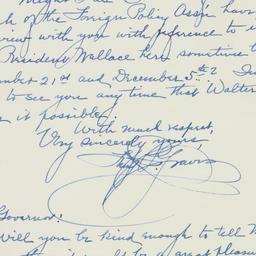 of the Foreign Policy Ass'n have
view with you with reference to
President Wallace here sometime b
mber 21st and December 5th?
to see you any time that Walter
it is possible.
With much respect,
Very sincerely yours,
Governor:
Will you be kind enough to tell M
a great pleasu